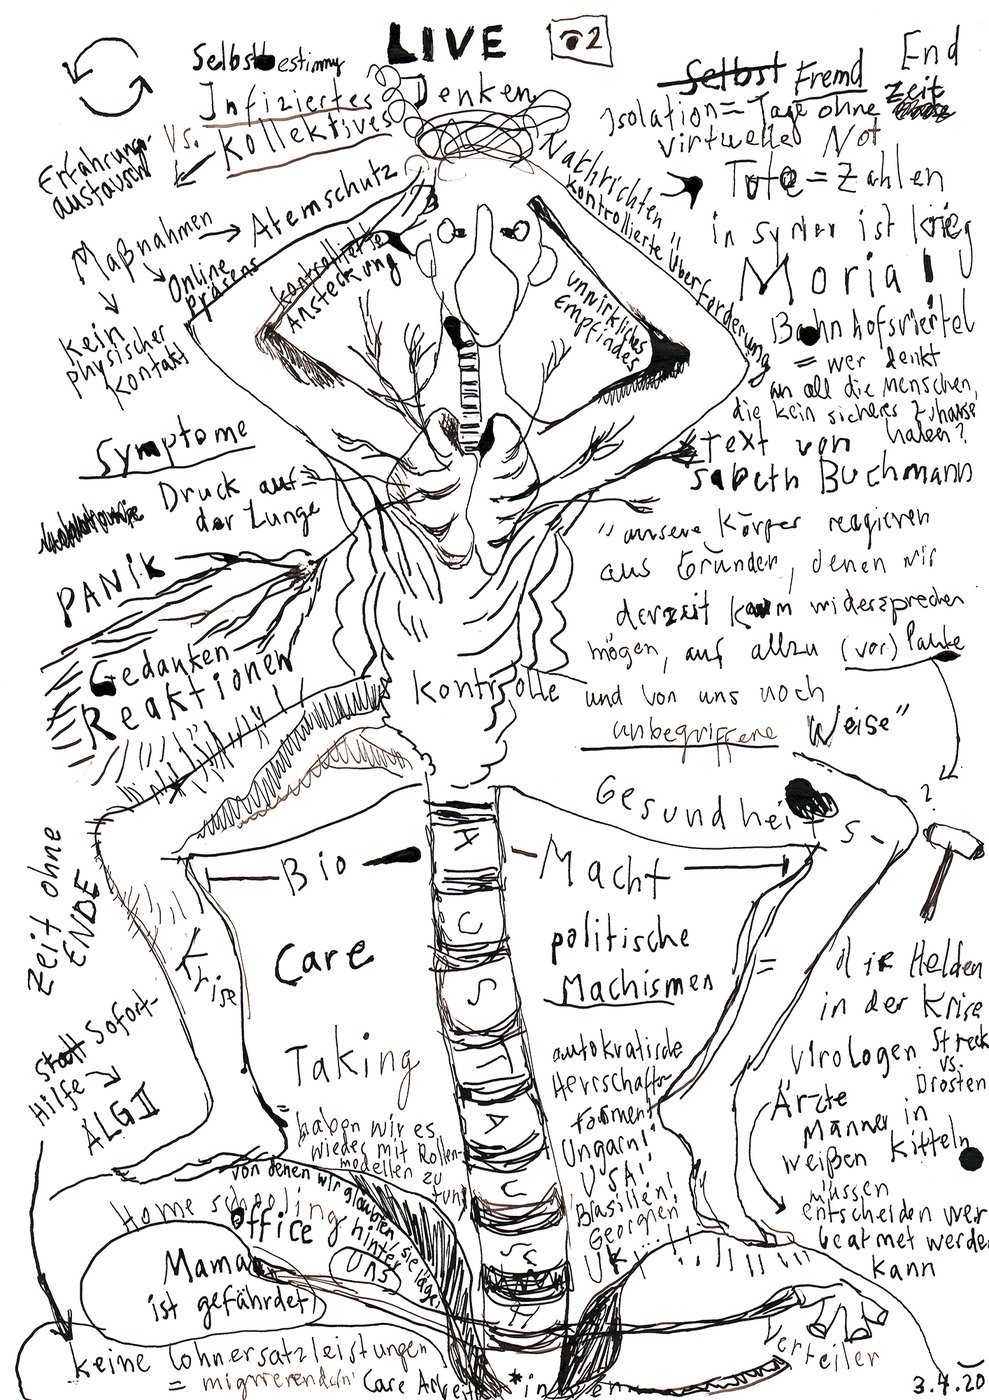 LIVE
2
Selbstbestimmg
Infiziertes Denken
vs. Kollektives
Erfahrungs-
austausch
Maßnahmen → Atemschutz
Online
Präsens
kein
physischer
Kontakt
kontrollierte
Ansteckung
unwirkliches
Empfinden
Nachrichten
kontrollierte Überforderung
Selbst Fremd
Isolation = Tage ohne
virtuelles Not
End
Zeit
Tote = Zahlen
in Syrien ist Krieg
Moria!
Bahnhofsviertel
= wer denkt
an all die Menschen,
die kein sicheres Zuhause
haben?
Text von
Sabeth Buchmann
"unsere Körper reagieren
aus Gründen, denen wir
derzeit kaum widersprechen
mögen, auf allzu (vor)laute
und von uns noch
unbegriffene Weise"
Symptome
Druck auf
der Lunge
PANIK
Gedanken
Reaktionen
Kontrolle
Gesundheit
S -
?
Bio - Macht
Care
Taking
politische
Machismen
=
die Helden
in der Krise
Virologen Streck
vs.
Drosten
Ärzte
Männer in
weißen Kitteln
müssen
entscheiden wer
beatmet werden
kann
autokratische
Herrschafts-
formen
Ungarn!
USA!
Basilien!
Georgien!
UK!
Zeit ohne
ENDE
Krise
Statt Sofort-
Hilfe
ALG II
= haben wir es
wieder mit Rollen-
modellen zu
tun,
von denen wir glaubten, sie läge
hinter
uns
Home schooling
Office
Mama
ist gefährdet
keine Lohnersatzleistungen
= migrierende(n) Care
A
C
S
T
A
C
H
Verteiler
3.4.20